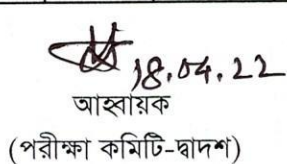 18.04.22
আহ্বায়ক
(পরীক্ষা কমিটি-দ্বাদশ)